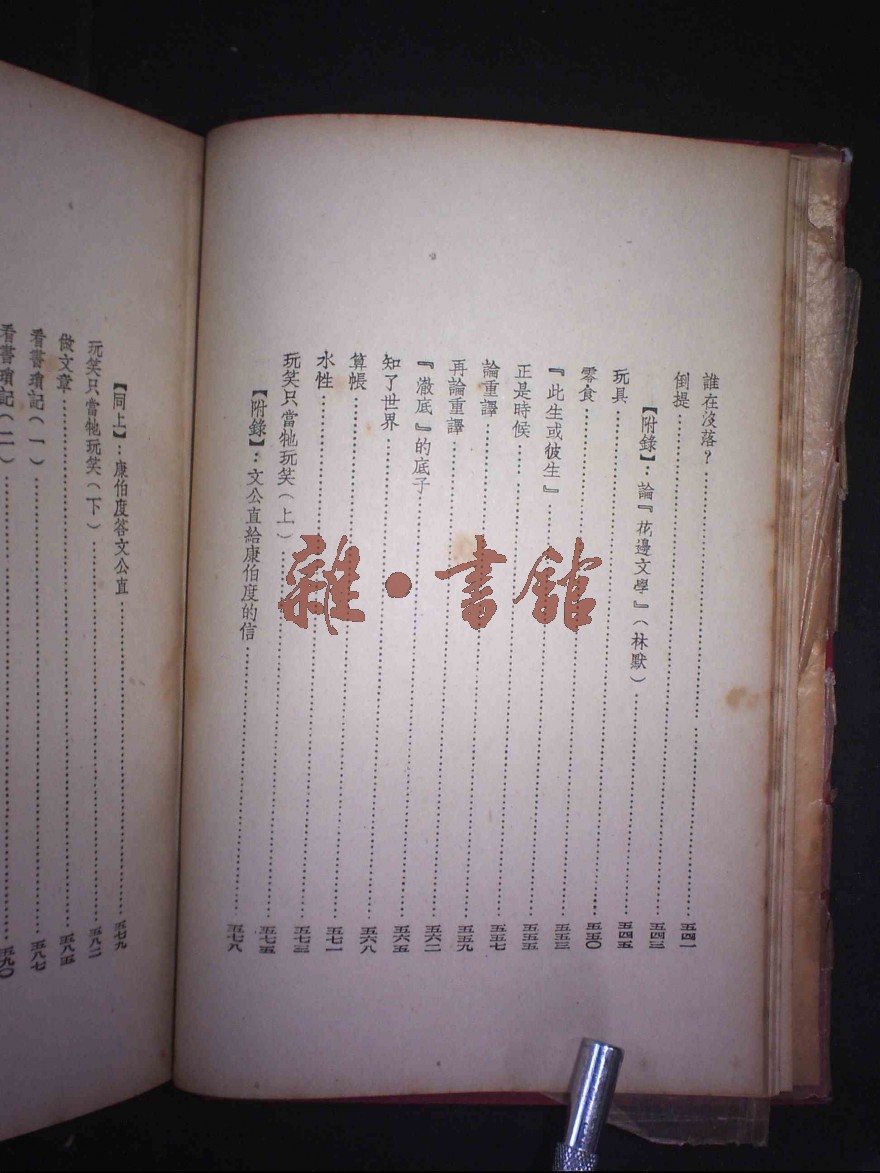 誰在沒落?……五四一
倒提……五四三
【附錄】:論『花邊文學』(林默)……五四五
玩具……五五〇
零食……五五三
『此生或彼生』……五五五
正是時候……五五七
論重譯……五五九
再論重譯……五六二
『澈底』的底子……五六五
知了世界……五六八
算帳……五七一
水性……五七三
玩笑只當牠玩笑(上)……五七五
【附錄】:文公直給康伯度的信……五七八
【同上】:康伯度答文公直……五七九
玩笑只當牠玩笑(下)……五八二
做文章……五八五
看書瑣記(一)……五八七
看書瑣記(二)……五九〇
雜·書館